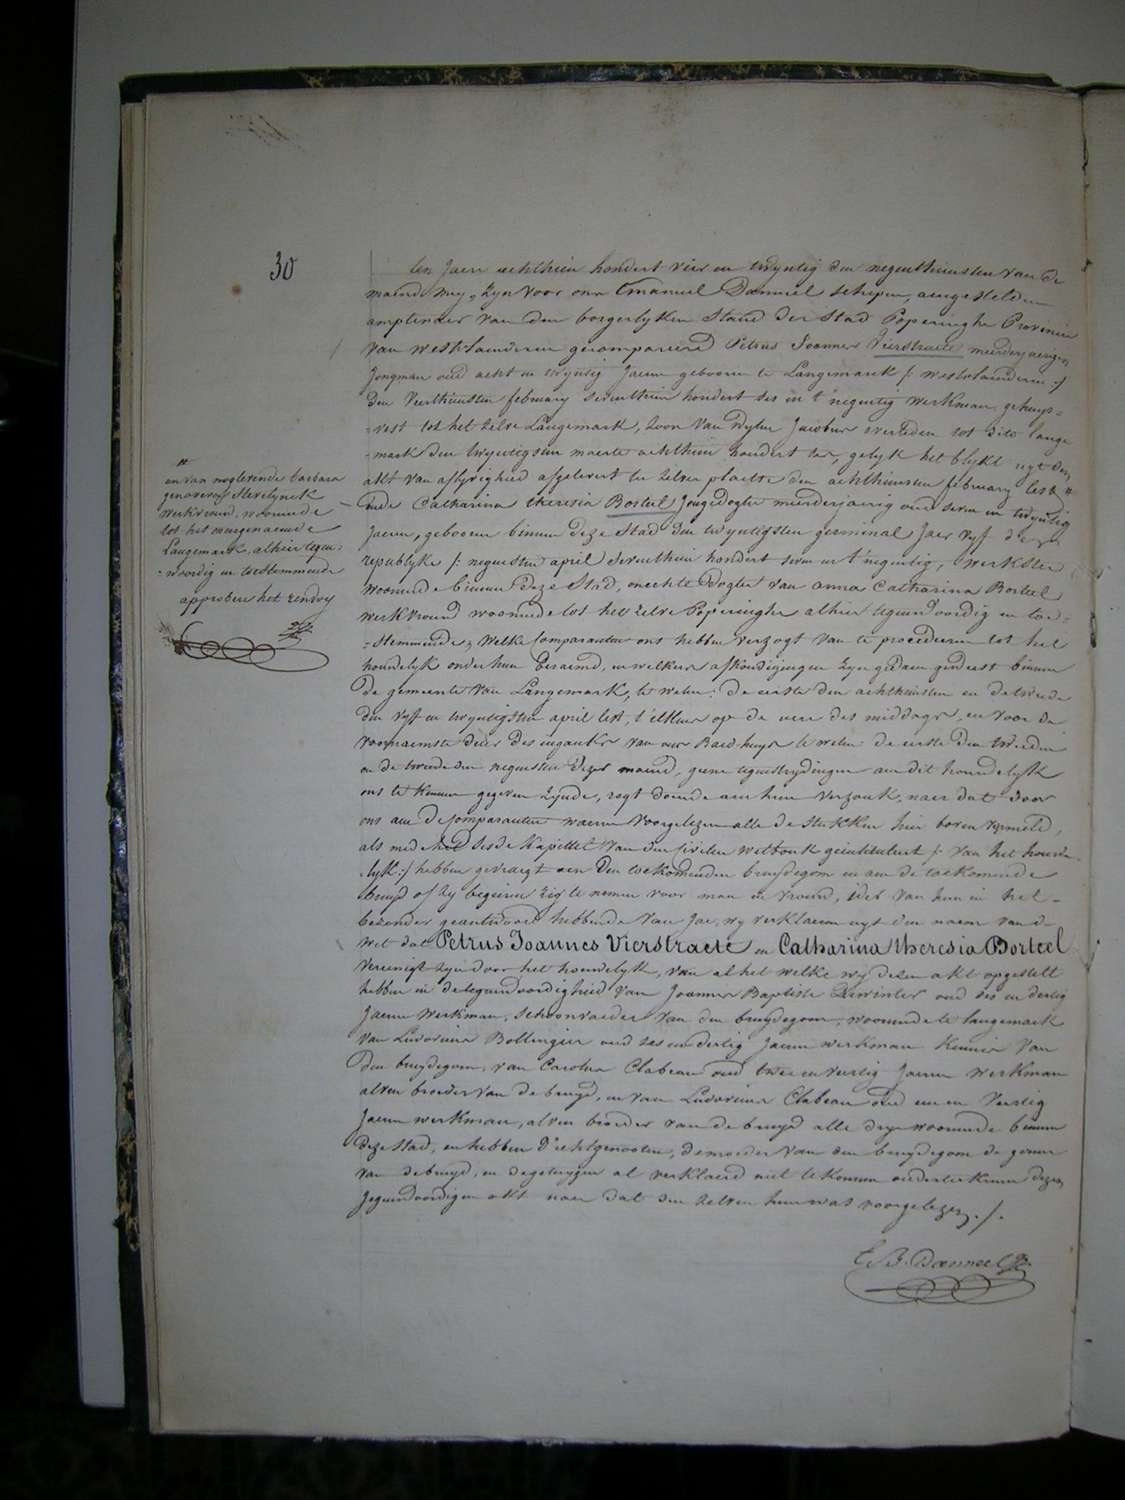 30
ten Jaere achthien hondert vier en twyntig den negenthiensten van de
maend mey, zyn voor ons Emanuel Danneel schepen, aengestelden
amptenaer van den borgerlyken Stand der Stad Poperinghe Provincie
van westvlaenderen gecompareerd Petrus Joannes Vierstraete meerderjaerigen
Jongman oud acht en twyntig Jaeren geboren te Langemarck /: westvlaenderen :/
den Veerthiensten february seventhien hondert ses en t'negentig werkman gehuys=
=vest tot het zelve Langemark, zoon van wylen Jacobus overleden tot dito lange
mark den twyntigsten maerte achthien hondert, gelyk het blykt uyt den
akt van aflyvigheid afgelevert ter zelver plaetse den achthiensten february lest #
ende Catharina theresia Borteel Jongedogter meerderjaerig oud seven en twyntig
Jaeren, geboren binnen deze Stad den twyntigsten germinal Jaer vyf der
republyke /: negensten april seventhien hondert seven en t'negentig, werkster
woonende binnen deze Stad, onechte dogter van anna Catharina Borteel
werkvrouw woonende tot het zelve Poperinghe alhier tegenwoordig en toe=
=stemmende, welke Comparanten ons hebben verzogt van te procederen tot het
houwelyk onder hun beraemd, en welkers afkondigingen zyn gedaen geweest binnen
de gemeente van Langemark, te weten: de eerste den achthiensten en de tweede
den vyf en twyntigsten april lest, t'elkens op de ure des middags, en voor de
voornaemste deure des ingank van ons Raedhuys te weten de eerste den tweeden
en de tweede den negensten dezer maend, geene tegenstrydingen aen dit houwelyk
ons te kennen gegeven zynde, regt doende aen hun verzoek, naer dat door
ons aen de comparanten waeren voorgelezen alle de stukken hier boven vermeld,
als mede het sesde Kapittel van den civielen wetboek geintituleert /: van het houwe=
=lyk :/ hebben gevraegt aen den toekomenden bruydegom en aen de toekomende
bruyd of zy begeiren zig te nemen voor man en vrouw, ider van hun in het
bezonder geantwoord hebbende van Jae, wy verklaeren uyt den naem van de
Wet dat Petrus Joannes Vierstraete en Catharina theresia Borteel
vereenigt zyn door het houwelyk, van al het welke wy dezen akt opgestelt
hebben in de tegenwoordigheid van Joannes Baptiste Dewinter oud ses en dertig
Jaeren werkman, schoonvaeder van den bruydegom, woonende te langemark
van Ludovicus Bollengier oud ses en dertig Jaeren werkman kennis van
den bruydegom, van Carolus Clabeau oud twee en veertig Jaeren werkman
alven broeder van de bruyd, en van Ludovicus Clabeau oud een en veertig
Jaeren werkman, alven broeder van de bruyd alle drye woonende binnen
deze stad, en hebben d'echtgenooten, de moeder van den bruydegom de gonne
van de bruyd, en de getuygen al verklaerd niet te konnen onderteekenen dezen
Jegenwoordigen akt naer dat den zelven hun was voorgelezen ./.
E. B. Danneel
#
en van nogleevende barbara
genoveva Sterlynck
werkvrouw, woonende
tot het voorgenaemde
Langemark, alhier tegen=
=woordig en toestemmende
approbere het rendvoy